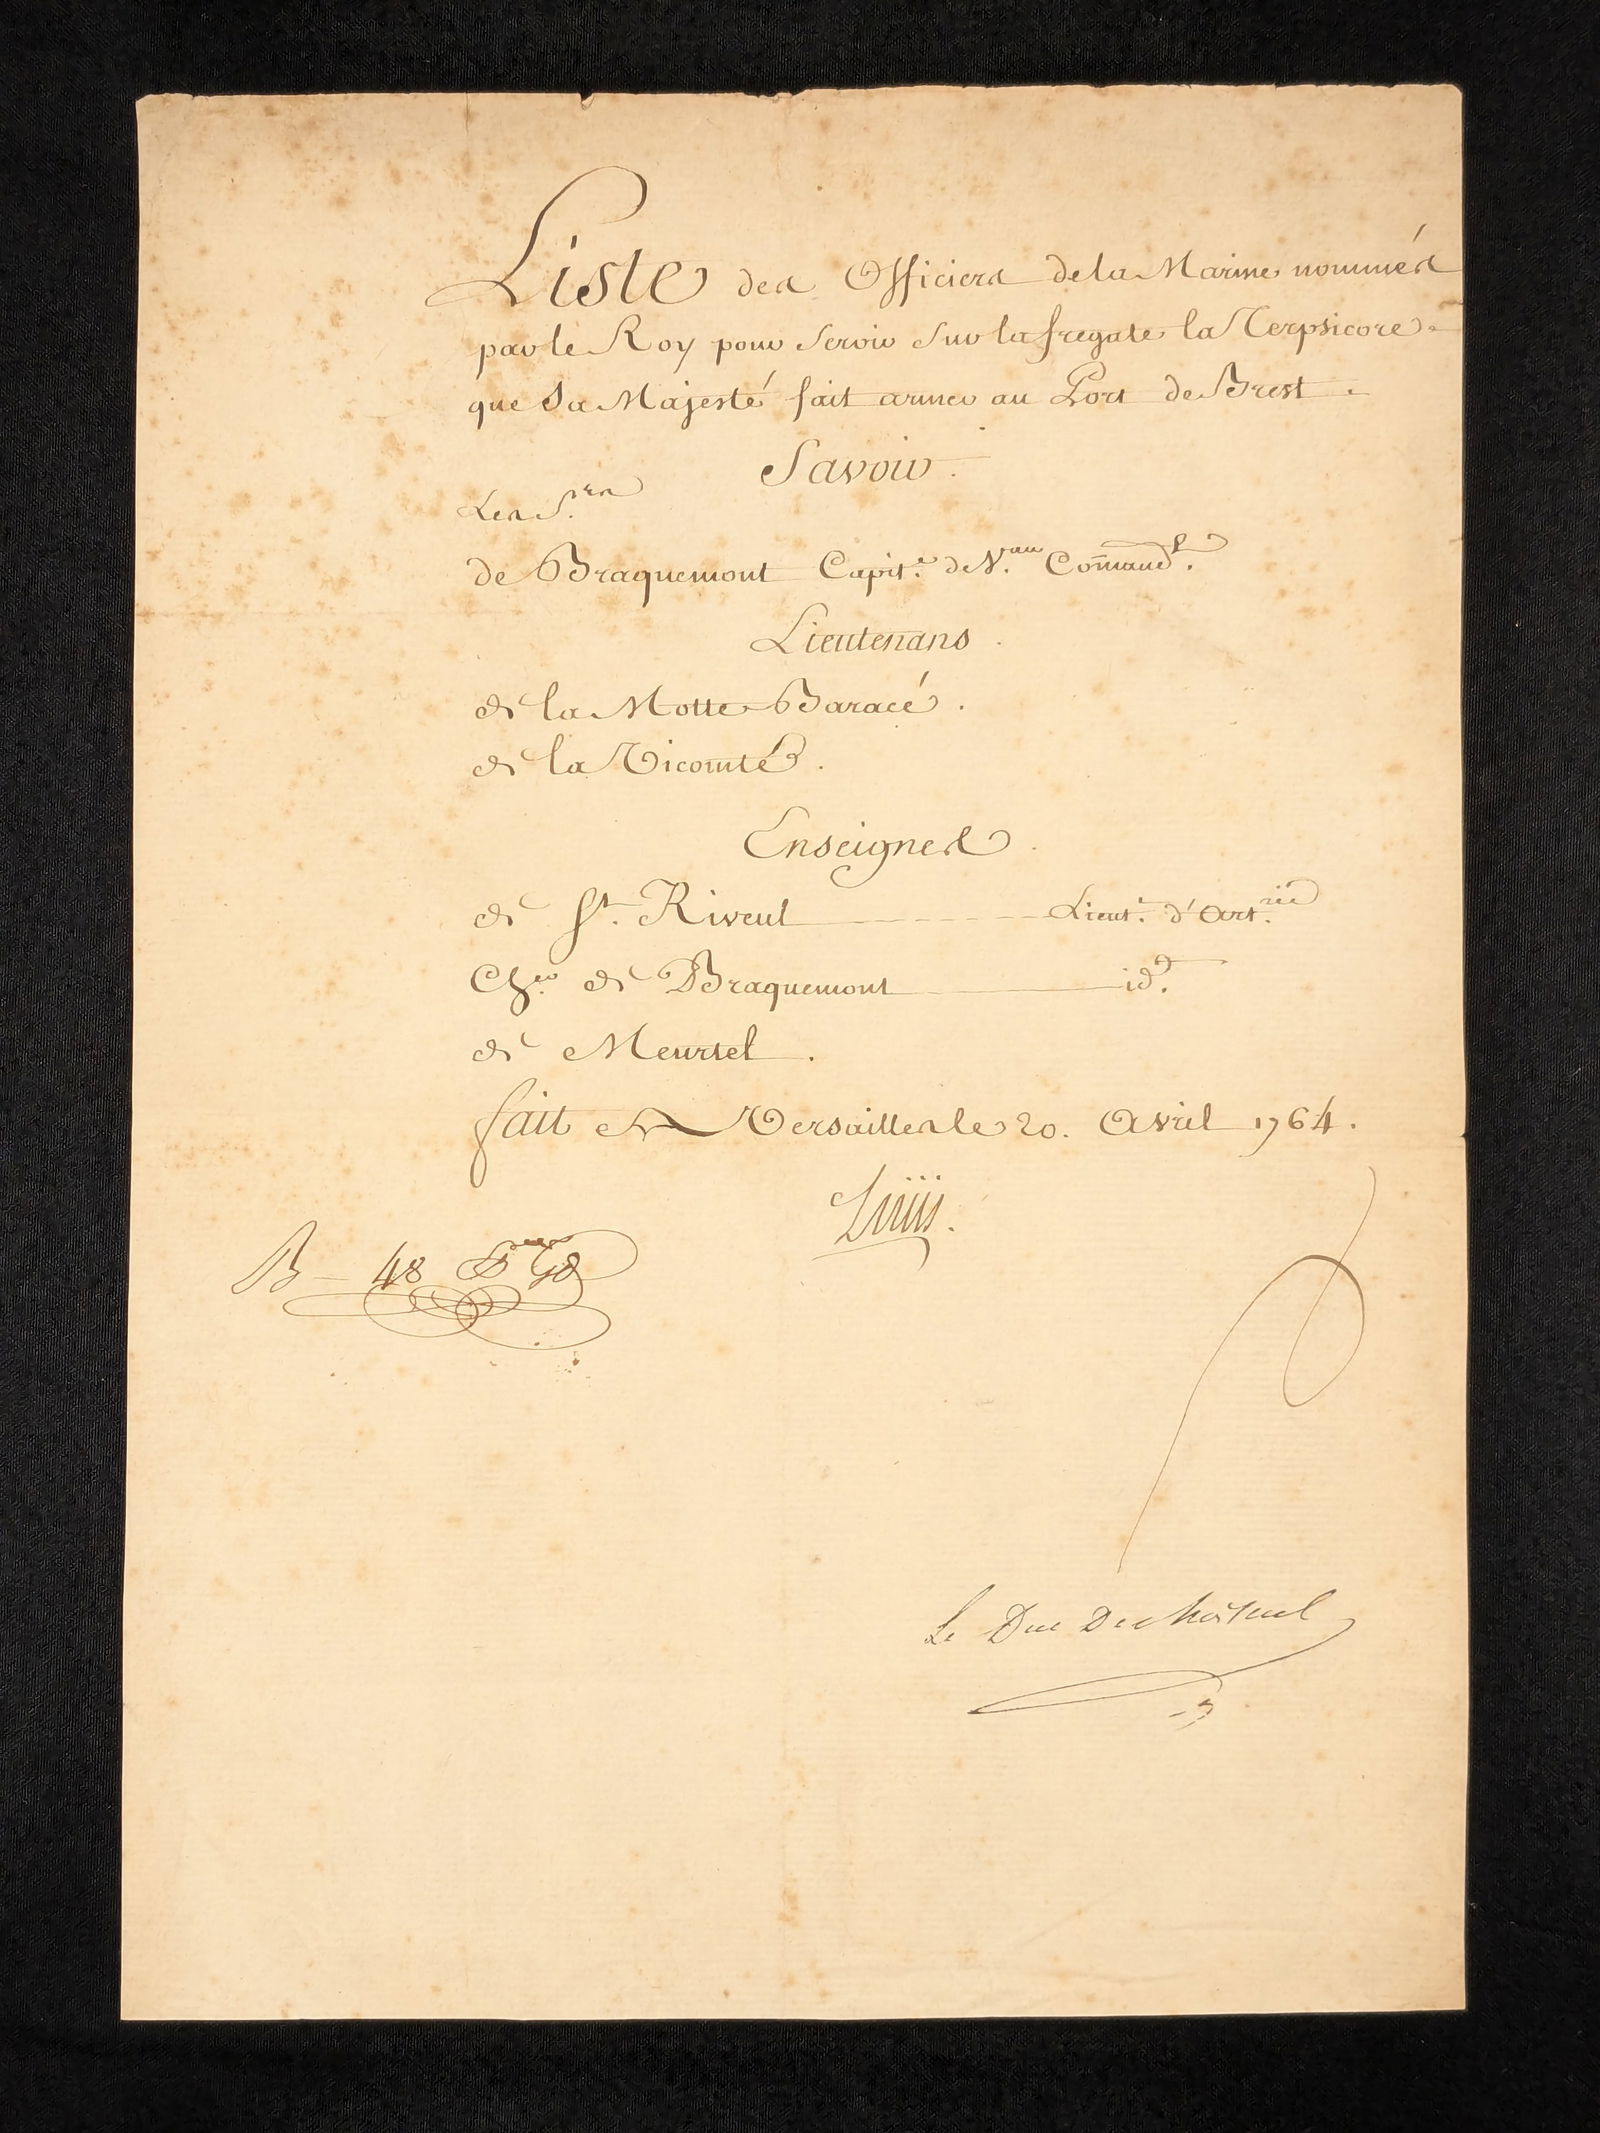 Liste des Officiers de la Marine nommés
par le Roy pour servir sur la fregate la Terpsicore
que Sa Majesté fait armer au Port de Brest.
Savoir.
Les S.rs
de Braquemont Capit.e de V.au Comand.t
Lieutenans.
de la Motte Baracé.
de la Vicomté.
Enseignes.
de St. Riveul Lieut.t d'Art.rie
Ch.er de Braquemont id.
de Meurtel.
fait à Versailles le 20. Avril 1764.
Louis.
B - 48
Le Duc De choiseul